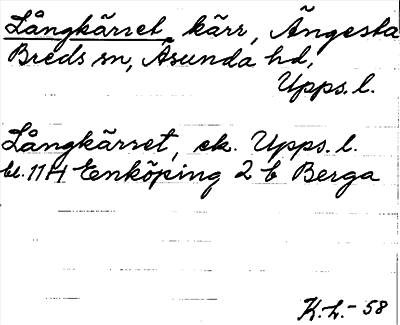 Långkärret, kärr, Ängesta
Breds sn, Åsunda hd,
Upps. l.
Långkärret, ek. Upps. l.
bl. 11H Enköping 2 b Berga
K.L.-58